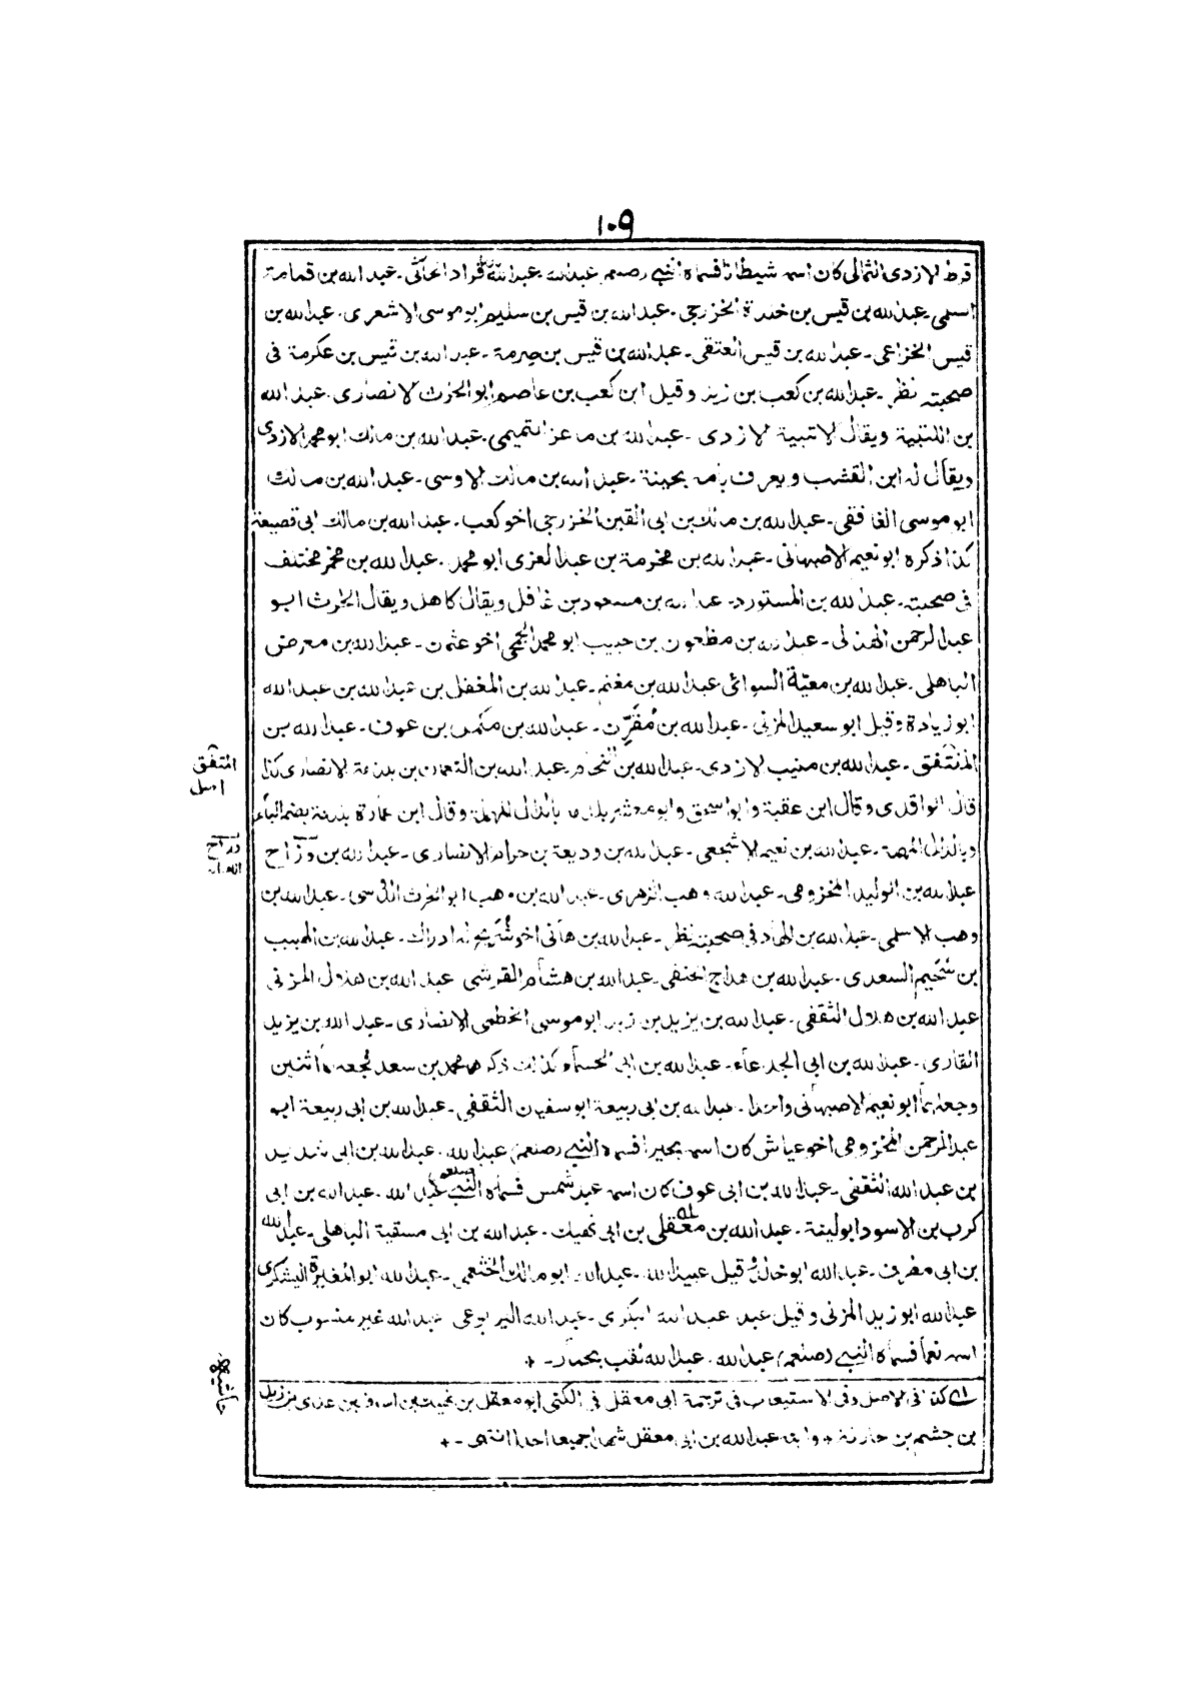 ١٠٩
قرط الازدى الثمالى كان اسمه شيطانا فسماه النبي صلعم عبدالله عبدالله قراد الحارثى۔ عبد الله بن قمامة
اسلمى۔ عبدالله بن قيس بن خلدة الخزرجى۔ عبدالله بن قيس بن سليم ابو موسى الاشعرى۔ عبدالله بن
قيس الخزاعى۔ عبدالله بن قيس العتقى۔ عبدالله بن قيس بن صرمة۔ عبدالله بن قيس بن عكرمة فى
صحبته نظر۔ عبدالله بن كعب بن زيد وقيل ابن كعب بن عاصم ابو الحرث الانصارى۔ عبد الله
بن اللتبية ويقال الاتبية الازدى۔ عبدالله بن ماعز التميمى۔ عبدالله بن مالك ابو محمد الازدى
ويقال له ابن القشب ويعرف بامه بحينة۔ عبدالله بن مالك الاوسى۔ عبدالله بن مالك
ابو موسى الغافقى۔ عبدالله بن مالك بن ابى القين الخزرجى اخو كعب۔ عبدالله بن مالك ابى قصيعة
كذا ذكره ابو نعيم الاصبهانى۔ عبدالله بن مخرمة بن عبدالعزى ابو محمد۔ عبدالله بن مخمر مختلف
فى صحبته۔ عبدالله بن المستورد۔ عبدالله بن مسعود بن غافل ويقال كاهل ويقال الحرث ابو
عبدالرحمن الهذلى۔ عبدالله بن مظعون بن حبيب ابو محمد الجمحى اخو عثمن۔ عبدالله بن معرض
الباهلى۔ عبدالله بن معيّة السوائى عبدالله بن مغنم۔ عبدالله بن المغفل بن عبدالله بن عبدالله
ابو زيادة وقيل ابو سعيد المزنى۔ عبدالله بن مُقَرِّن۔ عبدالله بن مكمل بن عوف۔ عبدالله بن
المنتفق۔ عبدالله بن منيب الازدى۔ عبدالله بن النحام۔ عبدالله بن النعمان بن بلدمة الانصارى كذا
قال الواقدى وقال ابن عقبة وابو اسحق وابو معشر بلدمه بالدال المهملة وقال ابن عمارة بلدمة بضم الباء
وبالذال المهمة۔ عبدالله بن نعيم الاشجعى۔ عبدالله بن وديعة بن حرام الانصارى۔ عبدالله بن وَزّاح
عبدالله بن الوليد المخزومى۔ عبدالله وهب الزهرى۔ عبدالله بن وهب ابو الحرث الدوسى۔ عبدالله بن
وهب الاسلمى۔ عبدالله بن الهاد فى صحبته نظر۔ عبدالله بن هانى اخو شُرَيح له ادراك۔ عبدالله بن الهبيب
بن سُحَيم السعدى۔ عبدالله بن هداج الحنفى۔ عبدالله بن هشام القرشى عبدالله بن هلال المزنى
عبدالله بن هلال الثقفى۔ عبدالله بن يزيد بن زيد ابو موسى الخطمى الانصارى۔ عبدالله بن يزيد
القارى۔ عبدالله بن ابى الجدعاء۔ عبدالله بن ابى الحسماء كذلك ذكرهما محمد بن سعد فجعهما اثنين
وجعلهما ابو نعيم الاصبهانى واحدا۔ عبدالله بن ابى ربيعة ابو سفيان الثقفى۔ عبدالله بن ابى ربيعة ابو
عبدالرحمن المخزومى اخو عياش كان اسمه بحيرا فسماه النبي (صلعم) عبدالله۔ عبدالله بن ابى شديد
بن عبدالله الثقفى۔ عبدالله بن ابى عوف كان اسمه عبد شمس فسماه النبي صلعم عبدالله۔ عبدالله بن ابى
كرب بن الاسود ابو لينة۔ عبدالله بن معقلى بن ابى نهيك۔ عبدالله بن ابى مسقية الباهلى۔ عبدالله
بن ابى مطرف۔ عبدالله ابو خالد وقيل عبيدالله۔ عبدالله ابو مالك الخثعمى۔ عبدالله ابو المغيرة اليشكرى
عبدالله ابو زيد المزنى وقيل عبد عبدالله البكرى۔ عبدالله اليربوعى عبدالله غير منسوب كان
اسمه نعما فسماه النبي (صلعم) عبدالله۔ عبدالله لقب بحمار۔ +
المتفق
اصل
دراح
حاشيه
له كذا فى الاصل وفى الاستيعاب فى ترجمة ابى معقل فى الكنى ابو معقل بن نهيك بن اساف بن عدى بن زيد
بن جشم بن حارثة + وابنه عبدالله بن ابى معقل شهدا جميعا احدا انتهى۔ +